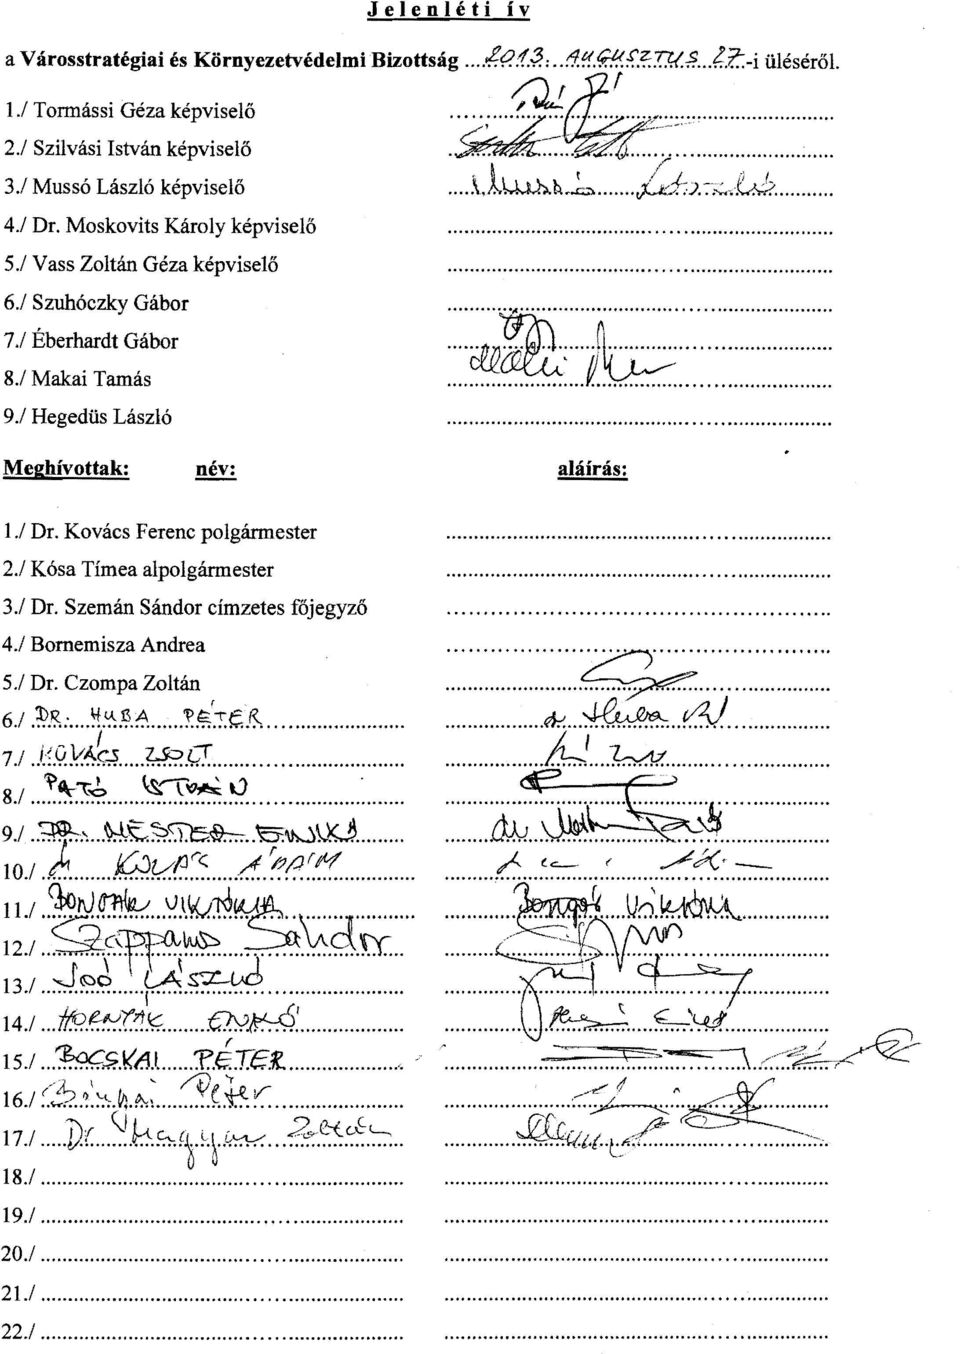 Jelenléti ív
a Városstratégiai és Környezetvédelmi Bizottság ...2013. AUGUSZTUS 27.-i üléséről.
1./ Tormássi Géza képviselő
2./ Szilvási István képviselő
3./ Mussó László képviselő Mussó László
4./ Dr. Moskovits Károly képviselő
5./ Vass Zoltán Géza képviselő
6./ Szuhóczky Gábor
7./ Éberhardt Gábor
8./ Makai Tamás
9./ Hegedüs László
Meghívottak: név: aláírás:
1./ Dr. Kovács Ferenc polgármester
2./ Kósa Tímea alpolgármester
3./ Dr. Szemán Sándor címzetes főjegyző
4./ Bornemisza Andrea
5./ Dr. Czompa Zoltán
6./ DR. HUBA PÉTER dr Huba
7./ KOVÁCS ZSOLT
8./ PATÓ ISTVÁN
9./ DR. MESTER ENIKŐ
10./ ÁDÁM
11./ VIKTÓRIA Viktória
12./ Szappanos Sándor
13./ Joó LÁSZLÓ
14./ HORNYÁK ENIKŐ
15./ BOCSKAI PÉTER
16./ Péter
17./ Dr Magyar Zoltán
18./
19./
20./
21./
22./